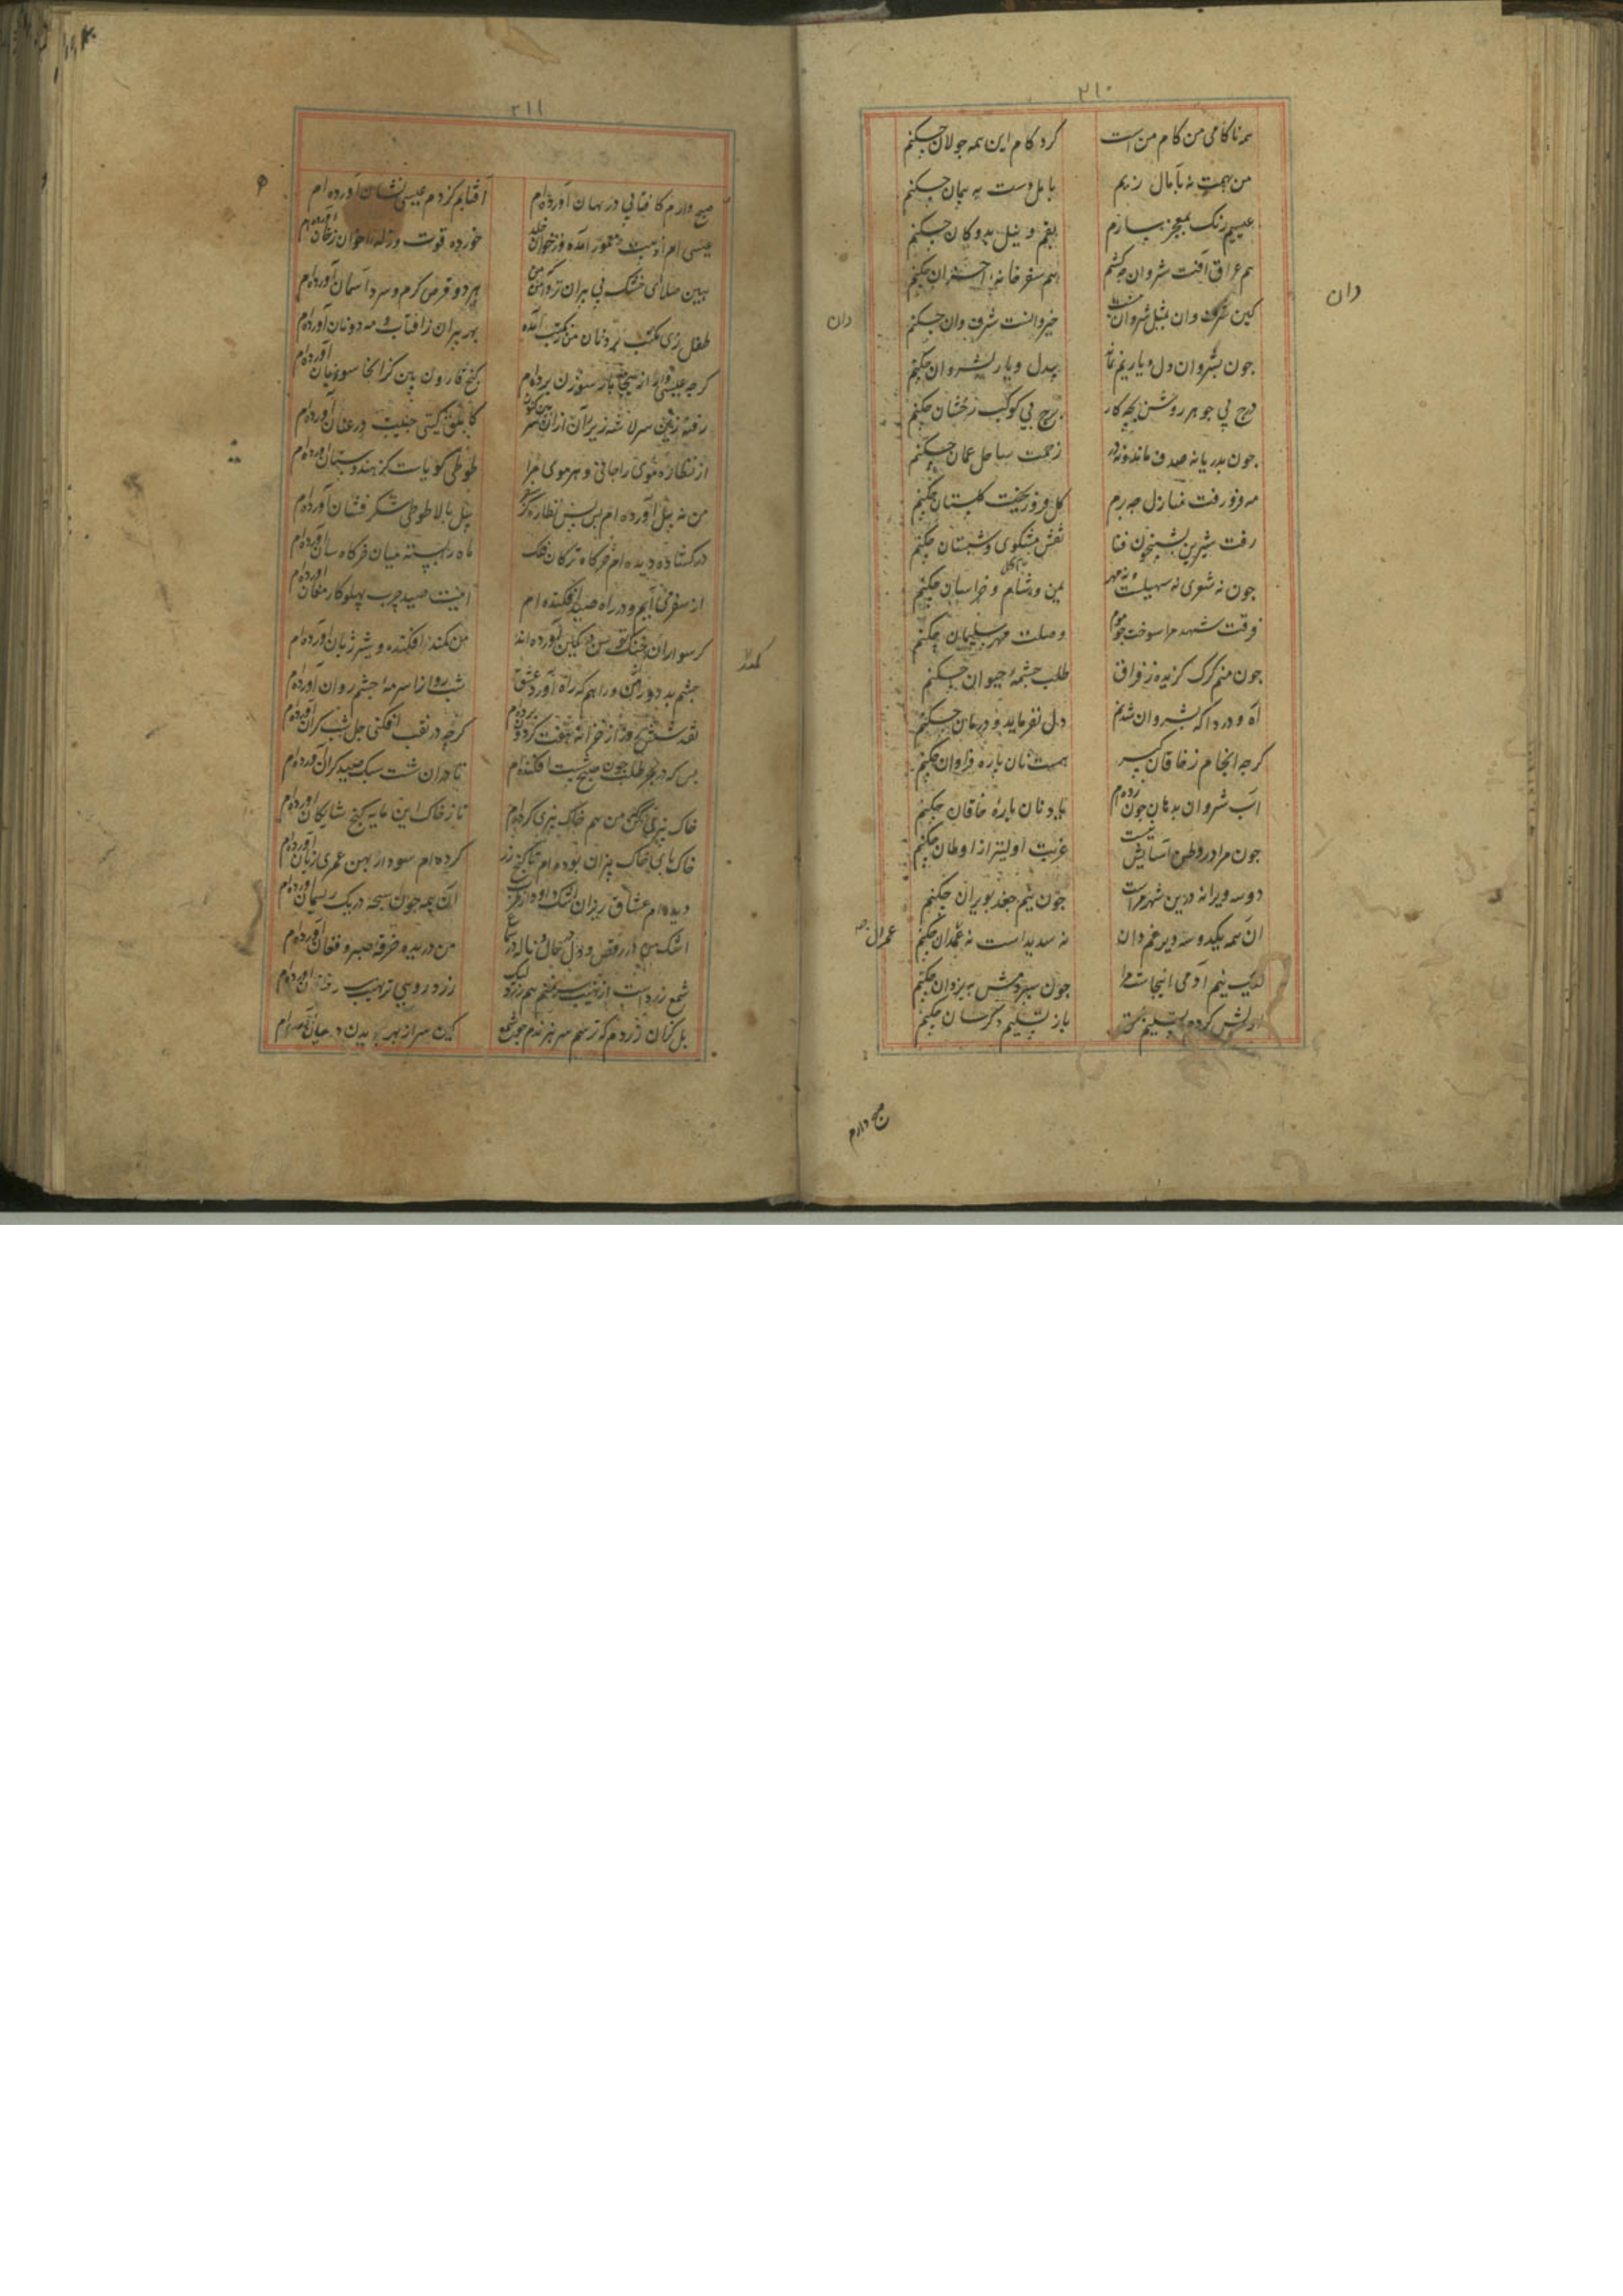 ٢١٠
همه ناکامی من کام من است کرد کام این همه جولان چکنم
من بهمت نه بآمال زیم با امل دست به پیمان چکنم
عیسیم رنک بمعجز سازم بقم و نیل بدوکان چکنم
هم عراق آفت شروان چه کشم هم سفر خانه احزان چکنم
کین شرف وان خیروانست شرف وان چکنم
دان
دان
چون بشروان دل و یاریم نماند بیدل و یار بشروان چکنم
درج بی جوهر روشن بچه کار برج بی کوکب رخشان چکنم
چون بدریا نه صدف ماند و نه در زحمت ساحل عمان چکنم
مه فرو رفت منازل چه برم گل فرو ریخت گلستان چکنم
رفت شیرین بشبیخون فنا نقش مشکوی و شبستان چکنم
چون نه شعری نه سهیلست و نه مهر یمن و شام و خراسان چکنم
فرقت شهد مرا سوخت چو موم وصلت مهر سلیمان چکنم
چون منم کرک کزیده ز فراق طلب چشمه حیوان چکنم
آه و دردا که بشروان شدنم دل نفرماید و درمان چکنم
کرچه انجام ز خاقان کبیر هست نان پاره فراوان چکنم
آب شروان بدهان چون زده‌ام یاد نان پاره خاقان چکنم
چون مرا در وطن آسایش نیست غربت اولیتر از اوطان چکنم
دو سه ویرانه درین شهر مراست چون نیم جغد بویران چکنم
آن همه یکدوسه دیر غم دان نه سدیر است نه غمدان چکنم
عمران
لیک نیم آدمی آنجاست مرا چون سپردمش به یزدان چکنم
اولش کرده‌ام تسلیم بحق باز تسلیم دکرسان چکنم
صبح دارم
٢١١
صبح وارم کافتابی در نهان آورده‌ام آفتابم کز دم عیسی نشان آورده‌ام
عیسی‌ام از بیت معمور آمده وز خوان خلد خورده قوت وزله اخوان ز خوان آورده‌ام
هین صلای خشک ای پیران تر دامن که من هر دو قرص کرم و سرد آسمان آورده‌ام
طفل زی مکتب برد نان من ز مکتب آمده بهر پیران ز آفتاب و مه دو نان آورده‌ام
کرچه عیسی وار از اینجا بار سوزن برده‌ام کنج قارون بین کز آنجا سوزیان آورده‌ام
رفته زین سر لاشه زیر آن از آن سر بین کنون کابلق کیتی جنیبت در عنان آورده‌ام
از نظاره موی را جانی و هر موی مرا طوطی کویاست کز هندوستان آورده‌ام
من نه پیل آورده‌ام بس بس نظاره کز سفر پیل بالا طوطی شکر فشان آورده‌ام
در کشاده دیده‌ام خرکاه ترکان فلک ماه را بسته میان خرکاه سان آورده‌ام
از سفر می‌آیم و در راه صید افکنده‌ام اینت صید چرب پهلو کارمغان آورده‌ام
کر سواران خنک توسن در کمین آورده‌اند من کمند افکنده و شیر ژیان آورده‌ام
کمند
چشم بد دور از من و راهم که راه آورد عشق شب روانرا سرمه چشم روان آورده‌ام
نقد شش روز از خزانه هفت کردون برده‌ام کرچه در نقب افکنی چل شب کران آورده‌ام
بس که در بحر طلب چون صبح شست افکنده‌ام تا در آن شست سبک صید کران آورده‌ام
خاک بیزی کن که من هم خاک بیزی کرده‌ام تا ز خاک این مایه کنج شایکان آورده‌ام
خاک پای خاک بیزان بوده‌ام تا کنج زر کرده‌ام سود ار بهین عمری زیان آورده‌ام
دیده‌ام عشاق ریزان اشک داود از طرب آن همه چون سبحه در یک ریسمان آورده‌ام
اشک من در رقص و دل در حال و ناله در سماع من دریده خرقه صبر و فغان آورده‌ام
شمع زرد است از نهیب سر منم هم زرد لیک زرد رویی نز نهیب سر چنان آورده‌ام
بل کزان زردم که ترسم سر نبرندم چو شمع کین سر از بهر بریدن در میان آورده‌ام